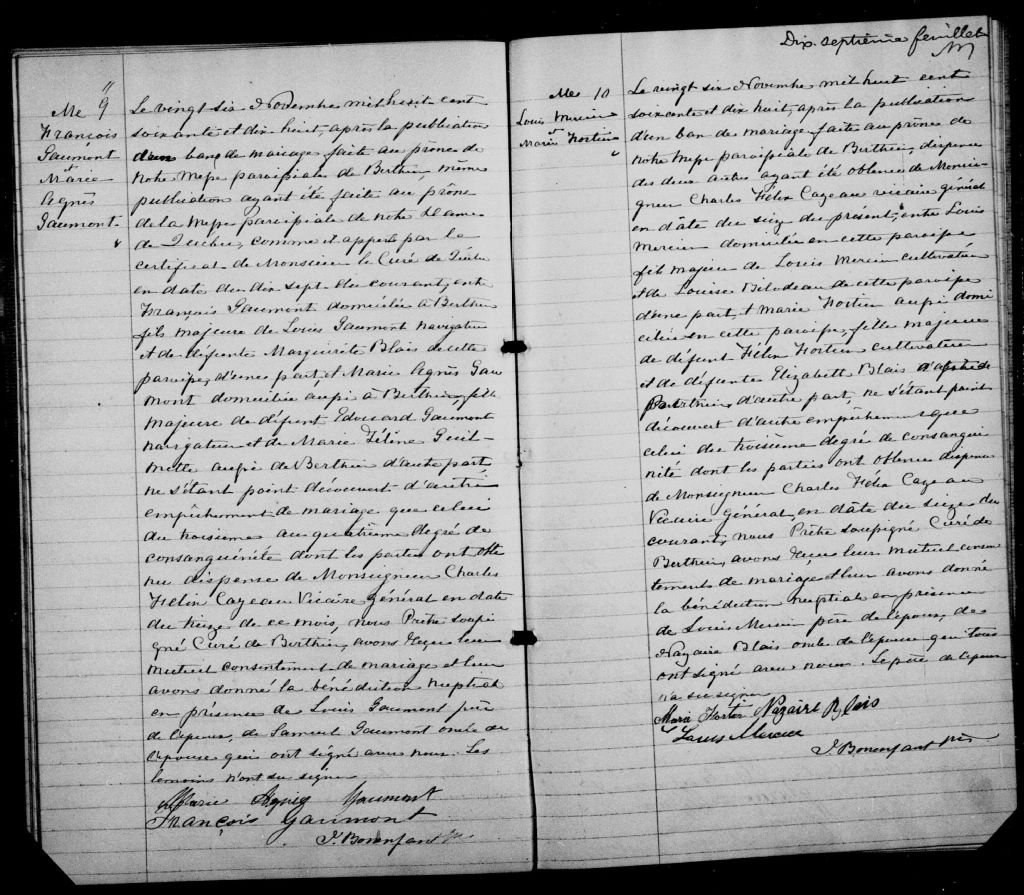 M 9
François
Gaumont
&
Marie
Agnès
Gaumont
Le vingt six Novembre mil huit cent
soixante et dix huit, après la publication
d'un ban de mariage faite au prône de
notre Messe paroissiale de Berthier, même
publication ayant été faite au prône
de la Messe paroissiale de Notre Dame
de Québec, comme il appert par le
certificat de Monsieur le Curé de Québec
en date du dix sept du courant, entre
François Gaumont domicilié à Berthier
fils majeur de Louis Gaumont navigateur
et de défunte Marguerite Blais de cette
paroisse, d'une part, et Marie Agnès Gau
mont domiciliée aussi à Berthier, fille
majeure de défunt Edouard Gaumont
navigateur et de Marie Céline Guil-
mette aussi de Berthier d'autre part;
ne s'étant point découvert d'autre
empêchement de mariage que celui
du troisième au quatrième degré de
consanguinité dont les parties ont obte
nu dispense de Monseigneur Charles
Félix Cazeau Vicaire général en date
du treize de ce mois, nous Prêtre soussi
gné Curé de Berthier, avons reçu leur
mutuel consentement de mariage et leur
avons donné la bénédiction nuptiale
en présence de Louis Gaumont père
de l'époux, de Samuel Gaumont oncle de
l'épouse qui ont signé avec nous. Les
témoins n'ont su signer
Marie Agnès Gaumont
François Gaumont
J. Bonenfant Ptre
Dix septième feuillet
M 10
Louis Mercier
et
Marie Fortier
Le vingt six Novembre mil huit cent
soixante et dix huit, après la publication
d'un ban de mariage faite au prône de
notre Messe paroissiale de Berthier, dispense
des deux autres ayant été obtenue de Monsei-
gneur Charles Félix Cazeau vicaire général
en date du seize du présent, entre Louis
Mercier domicilié en cette paroisse
fils majeur de Louis Mercier cultivateur
et de Louise Bilodeau de cette paroisse
d'une part, et Marie Fortier aussi domi
ciliée en cette paroisse, fille majeure
de défunt Félix Fortier cultivateur
et de défunte Elizabeth Blais
Berthier, d'autre part, ne s'étant point
découvert d'autre empêchement que
celui du troisième degré de consangui
nité dont les parties ont obtenu dispense
de Monseigneur Charles Félix Cazeau
Vicaire général, en date du seize du
courant, nous Prêtre soussigné Curé de
Berthier, avons reçu leur mutuel consen
tement de mariage et leur avons donné
la bénédiction nuptiale en présence
de Louis Mercier père de l'époux, de
Nazaire Blais oncle de l'épouse qui tous
ont signé avec nous. Le père de l'époux
n'a su signer
Marie Fortier Nazaire Blais
Louis Mercier
J. Bonenfant Ptre